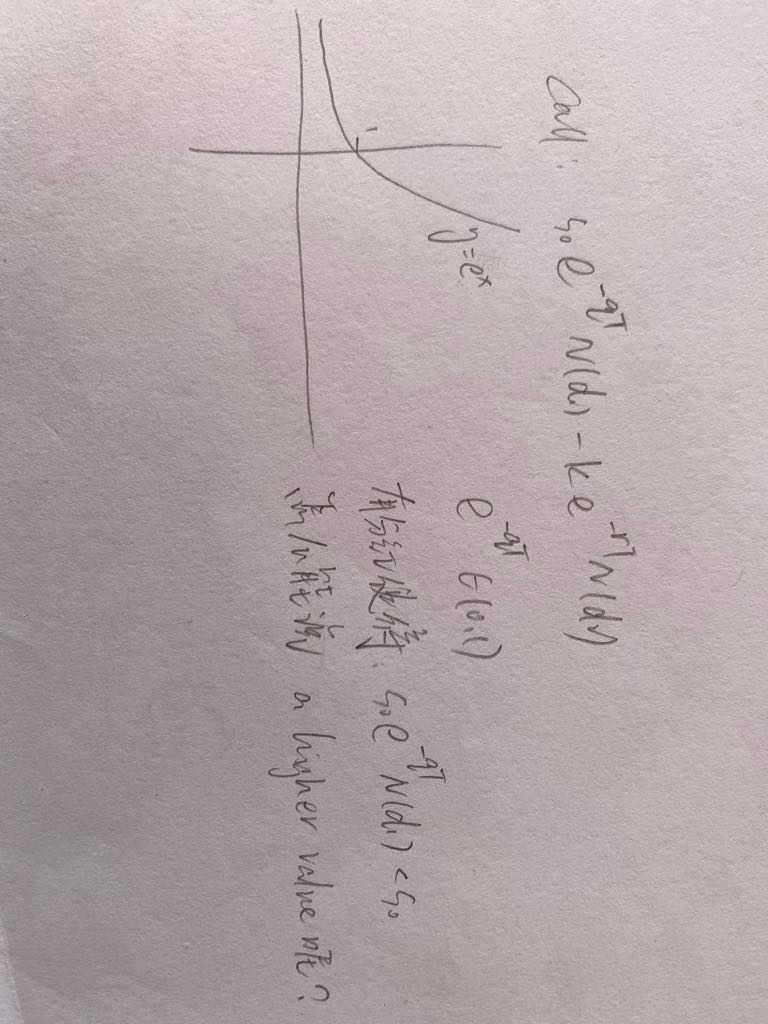 Call: S₀e^{-qT} N(d₁) - ke^{-rT} N(d₂)
1
y=e^x
e^{-qT} ∈(0,1)
有分红使得: S₀e^{-qT} N(d₁) < S₀
为什么能说 a higher value 呢?